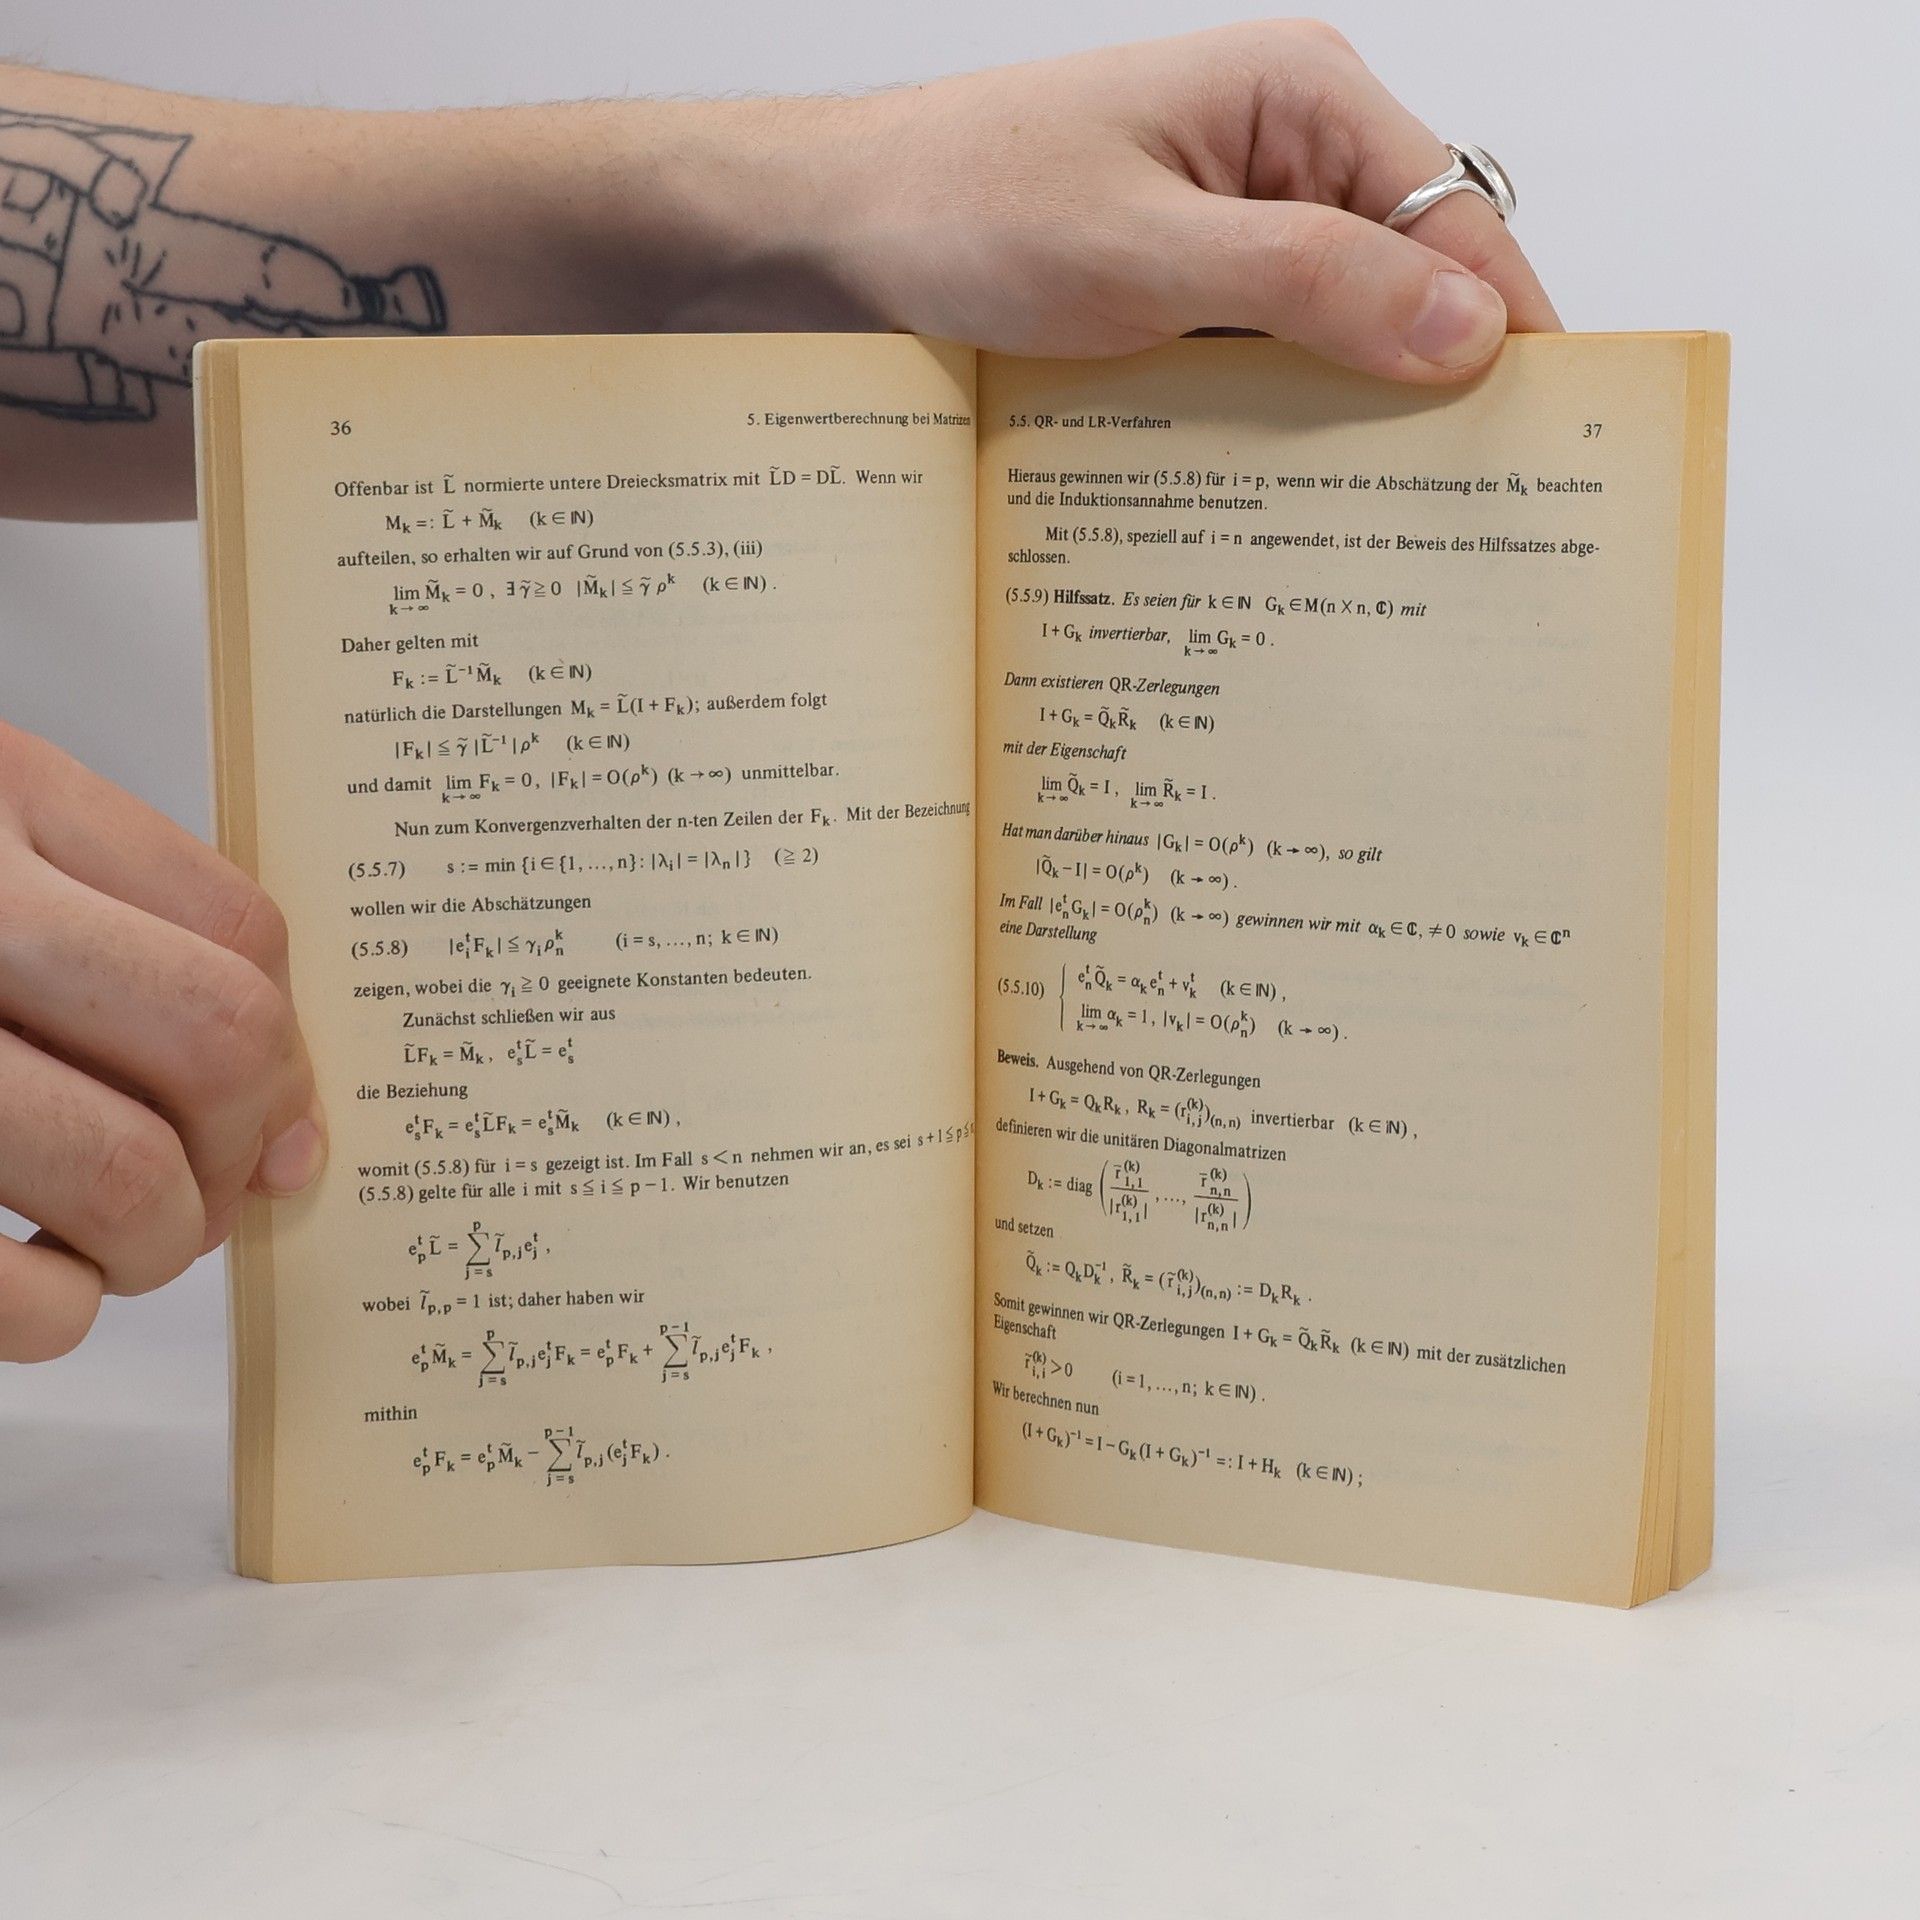 36
5. Eigenwertberechnung bei Matrizen
Offenbar ist L̃ normierte untere Dreiecksmatrix mit L̃D = DL̃. Wenn wir
Mₖ =: L̃ + M̃ₖ (k ∈ ℕ)
aufteilen, so erhalten wir auf Grund von (5.5.3), (iii)
lim_{k→∞} M̃ₖ = 0 , ∃ γ̃ ≧ 0 |M̃ₖ| ≦ γ̃ ρᵏ (k ∈ ℕ) .
Daher gelten mit
Fₖ := L̃⁻¹M̃ₖ (k ∈ ℕ)
natürlich die Darstellungen Mₖ = L̃(I + Fₖ); außerdem folgt
|Fₖ| ≦ γ̃ |L̃⁻¹| ρᵏ (k ∈ ℕ)
und damit lim_{k→∞} Fₖ = 0, |Fₖ| = O(ρᵏ) (k → ∞) unmittelbar.
Nun zum Konvergenzverhalten der n-ten Zeilen der Fₖ. Mit der Bezeichnung
(5.5.7) s := min {i ∈ {1, ..., n}: |λᵢ| = |λₙ|} (≧ 2)
wollen wir die Abschätzungen
(5.5.8) |eᵢᵗFₖ| ≦ γᵢρₙᵏ (i = s, ..., n; k ∈ ℕ)
zeigen, wobei die γᵢ ≧ 0 geeignete Konstanten bedeuten.
Zunächst schließen wir aus
L̃Fₖ = M̃ₖ , eₛᵗL̃ = eₛᵗ
die Beziehung
eₛᵗFₖ = eₛᵗL̃Fₖ = eₛᵗM̃ₖ (k ∈ ℕ) ,
womit (5.5.8) für i = s gezeigt ist. Im Fall s < n nehmen wir an, es sei s + 1 ≦ p ≦
(5.5.8) gelte für alle i mit s ≦ i ≦ p − 1. Wir benutzen
eₚᵗL̃ = ∑_{j=s}^{p} l̃_{p,j}eⱼᵗ ,
wobei l̃_{p,p} = 1 ist; daher haben wir
eₚᵗM̃ₖ = ∑_{j=s}^{p} l̃_{p,j}eⱼᵗFₖ = eₚᵗFₖ + ∑_{j=s}^{p−1} l̃_{p,j}eⱼᵗFₖ ,
mithin
eₚᵗFₖ = eₚᵗM̃ₖ − ∑_{j=s}^{p−1} l̃_{p,j}(eⱼᵗFₖ) .
5.5. QR- und LR-Verfahren
37
Hieraus gewinnen wir (5.5.8) für i = p, wenn wir die Abschätzung der M̃ₖ beachten
und die Induktionsannahme benutzen.
Mit (5.5.8), speziell auf i = n angewendet, ist der Beweis des Hilfssatzes abge-
schlossen.
(5.5.9) Hilfssatz. Es seien für k ∈ ℕ Gₖ ∈ M(n × n, ℂ) mit
I + Gₖ invertierbar, lim_{k→∞} Gₖ = 0 .
Dann existieren QR-Zerlegungen
I + Gₖ = Q̃ₖR̃ₖ (k ∈ ℕ)
mit der Eigenschaft
lim_{k→∞} Q̃ₖ = I , lim_{k→∞} R̃ₖ = I .
Hat man darüber hinaus |Gₖ| = O(ρᵏ) (k → ∞), so gilt
|Q̃ₖ − I| = O(ρᵏ) (k → ∞) .
Im Fall |eₙᵗGₖ| = O(ρₙᵏ) (k → ∞) gewinnen wir mit αₖ ∈ ℂ, ≠ 0 sowie vₖ ∈ ℂⁿ
eine Darstellung
(5.5.10) { eₙᵗQ̃ₖ = αₖeₙᵗ + vₖᵗ (k ∈ ℕ) ,
lim_{k→∞} αₖ = 1, |vₖ| = O(ρₙᵏ) (k → ∞) .
Beweis. Ausgehend von QR-Zerlegungen
I + Gₖ = QₖRₖ , Rₖ = (r_{i,j}^{(k)})_{(n,n)} invertierbar (k ∈ ℕ) ,
definieren wir die unitären Diagonalmatrizen
Dₖ := diag ( r̄_{1,1}^{(k)} / |r_{1,1}^{(k)}| , ..., r̄_{n,n}^{(k)} / |r_{n,n}^{(k)}| )
und setzen
Q̃ₖ := QₖDₖ⁻¹ , R̃ₖ = (r̃_{i,j}^{(k)})_{(n,n)} := DₖRₖ .
Somit gewinnen wir QR-Zerlegungen I + Gₖ = Q̃ₖR̃ₖ (k ∈ ℕ) mit der zusätzlichen
Eigenschaft
r̃_{i,i}^{(k)} > 0 (i = 1, ..., n; k ∈ ℕ) .
Wir berechnen nun
(I + Gₖ)⁻¹ = I − Gₖ(I + Gₖ)⁻¹ =: I + Hₖ (k ∈ ℕ) ;